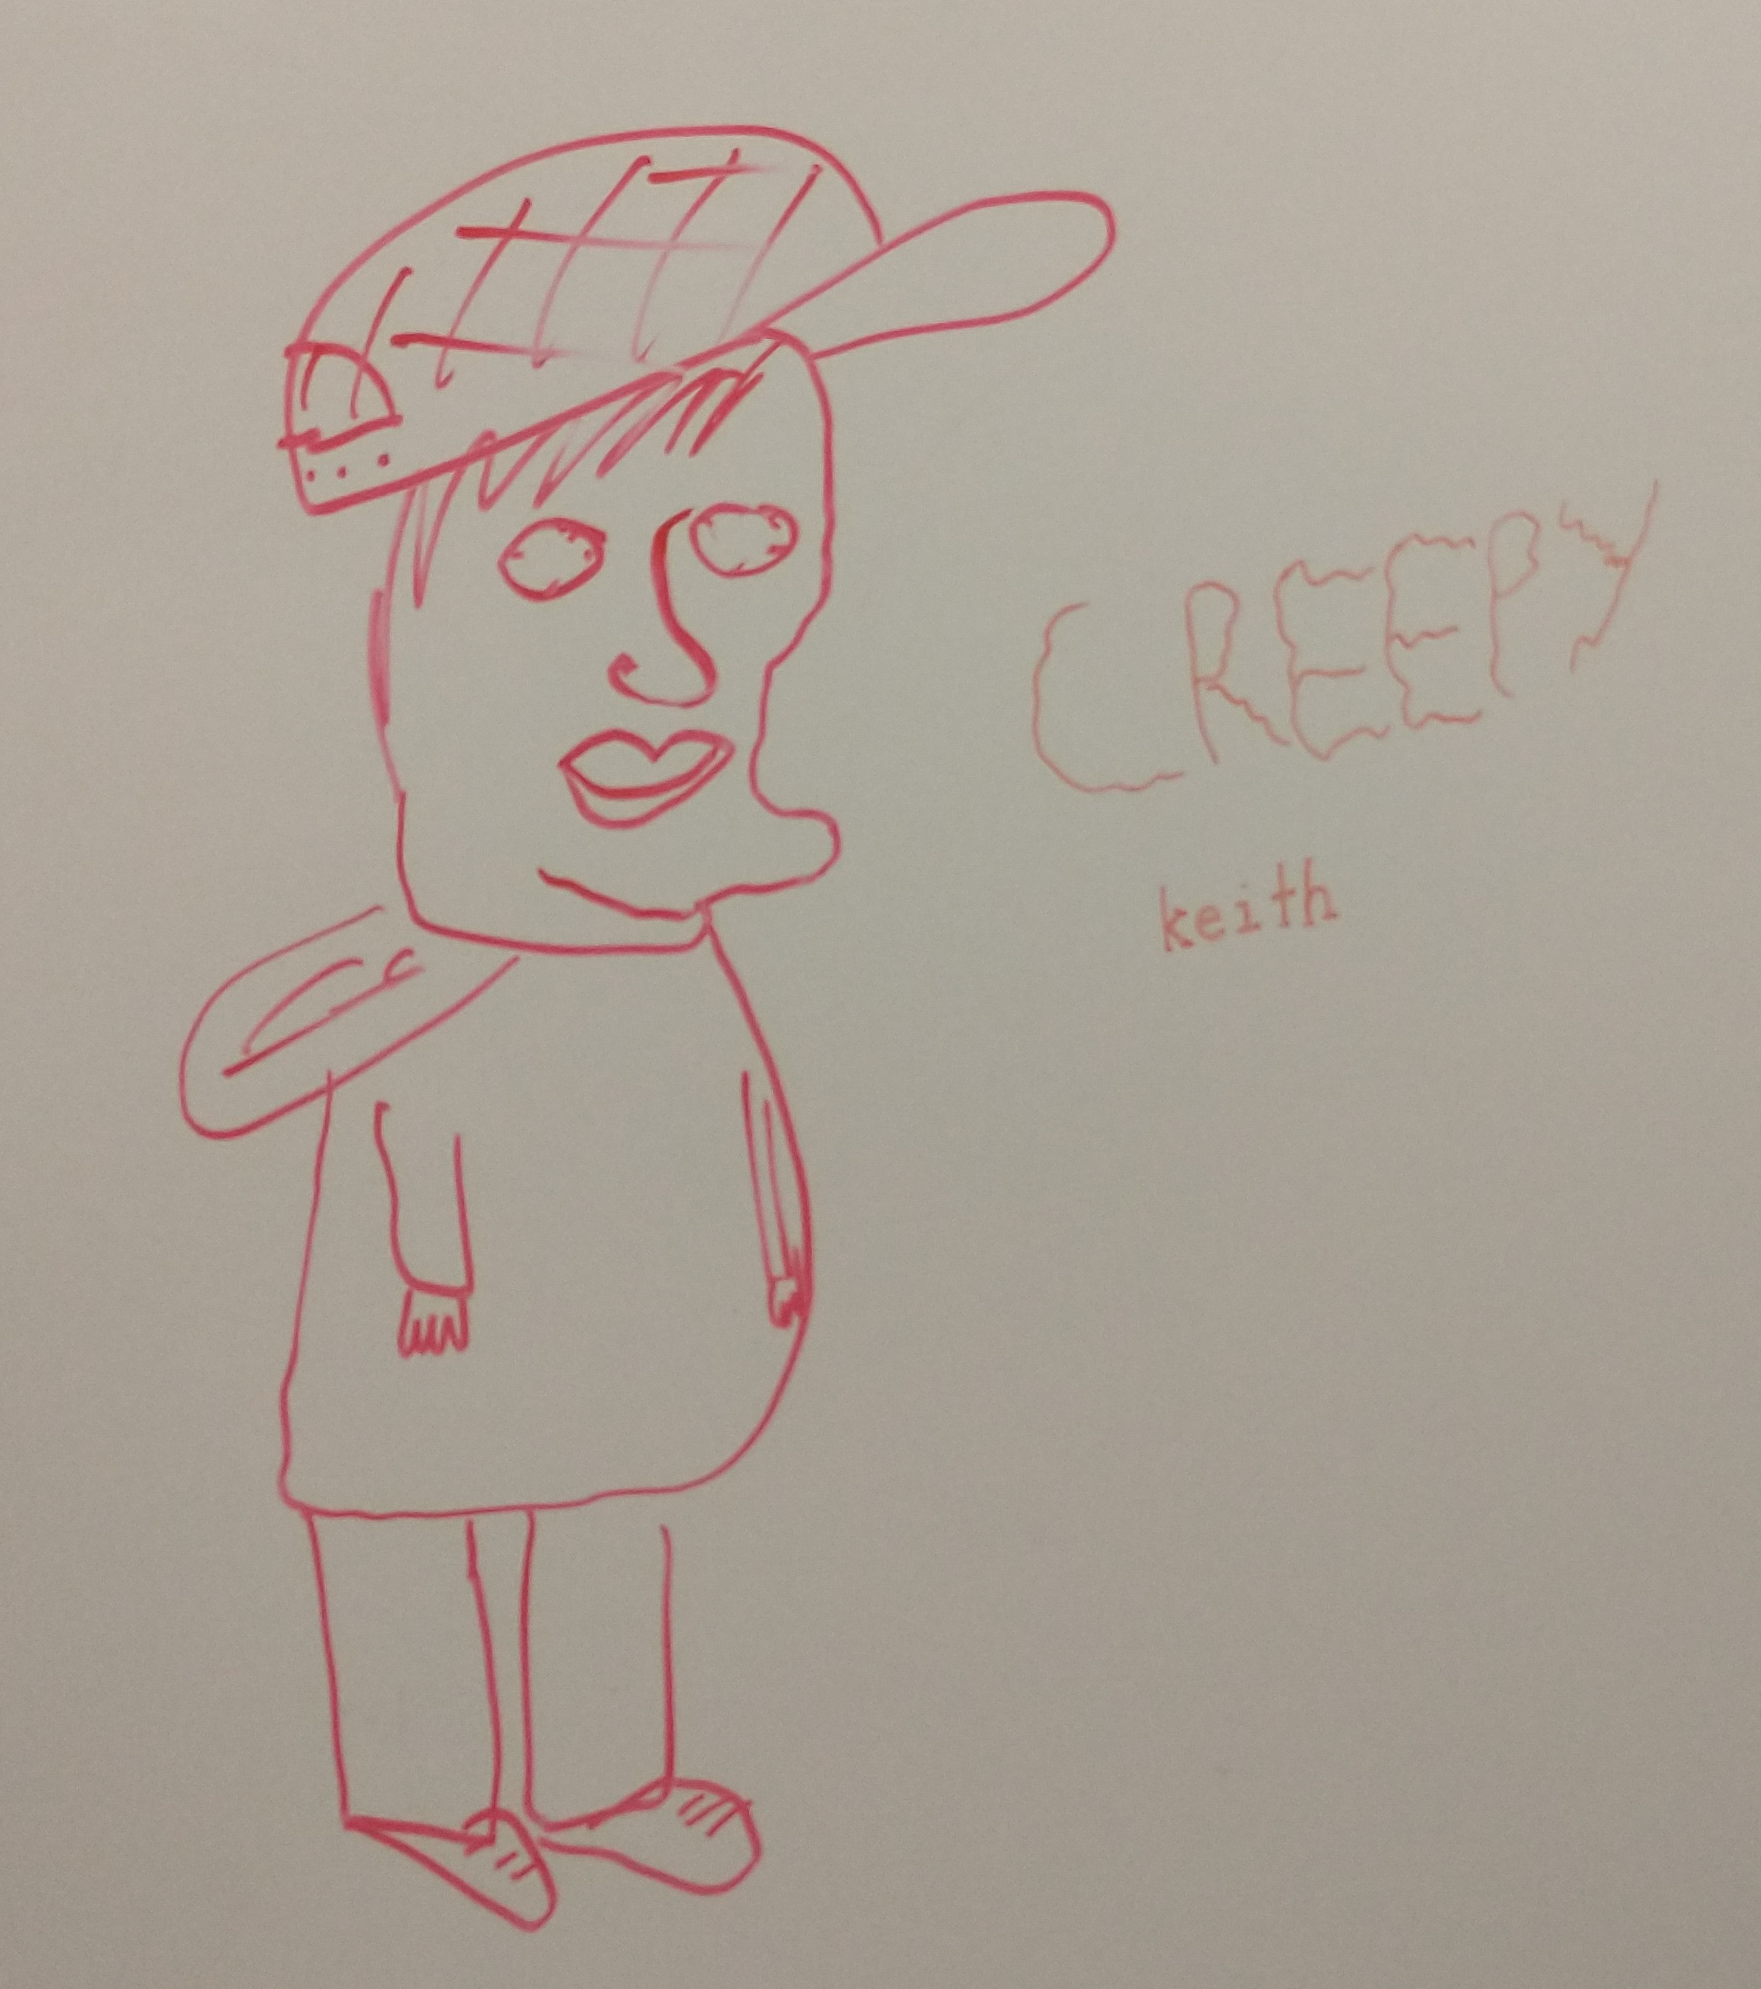 CREEPY
keith